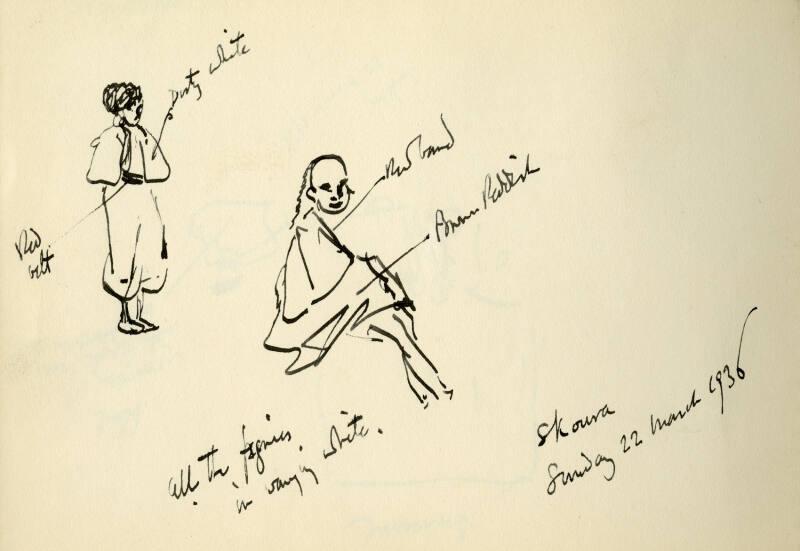 Dirty white
Red
belt
Red band
Brown Reddish
all the figures
in varying white.
Skoura
Sunday 22 March 1936